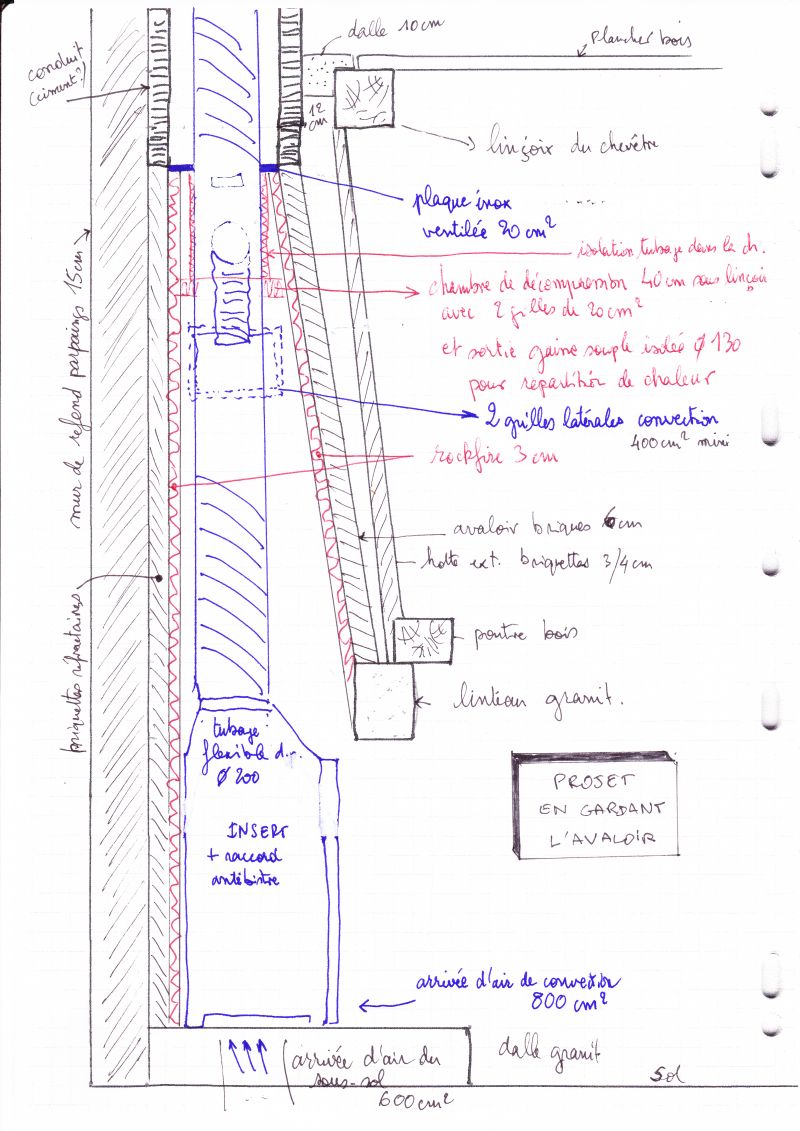 dalle 10cm
Plancher bois
conduit
(ciment?)
12
cm
linçoix du chevêtre
plaque inox
ventilée 20 cm²
isolation tubage dans le ch.
chambre de décompression 40cm sous linçoix
avec 2 grilles de 20cm²
et sortie gaine souple isolée ø 130
pour repartition de chaleur
2 grilles latérales convection
400cm² mini
rockfire 3 cm
mur de refend parpaings 15cm
avaloir briques 6cm
hotte ext. briquettes 3/4 cm
briquettes réfractaires
poutre bois
linteau granit.
tubage
flexible d...
ø 200
PROJET
EN GARDANT
L'AVALOIR
INSERT
+ raccord
antibistre
arrivée d'air de convection
800 cm²
arrivée d'air du
sous-sol
600cm²
dalle granit
Sol